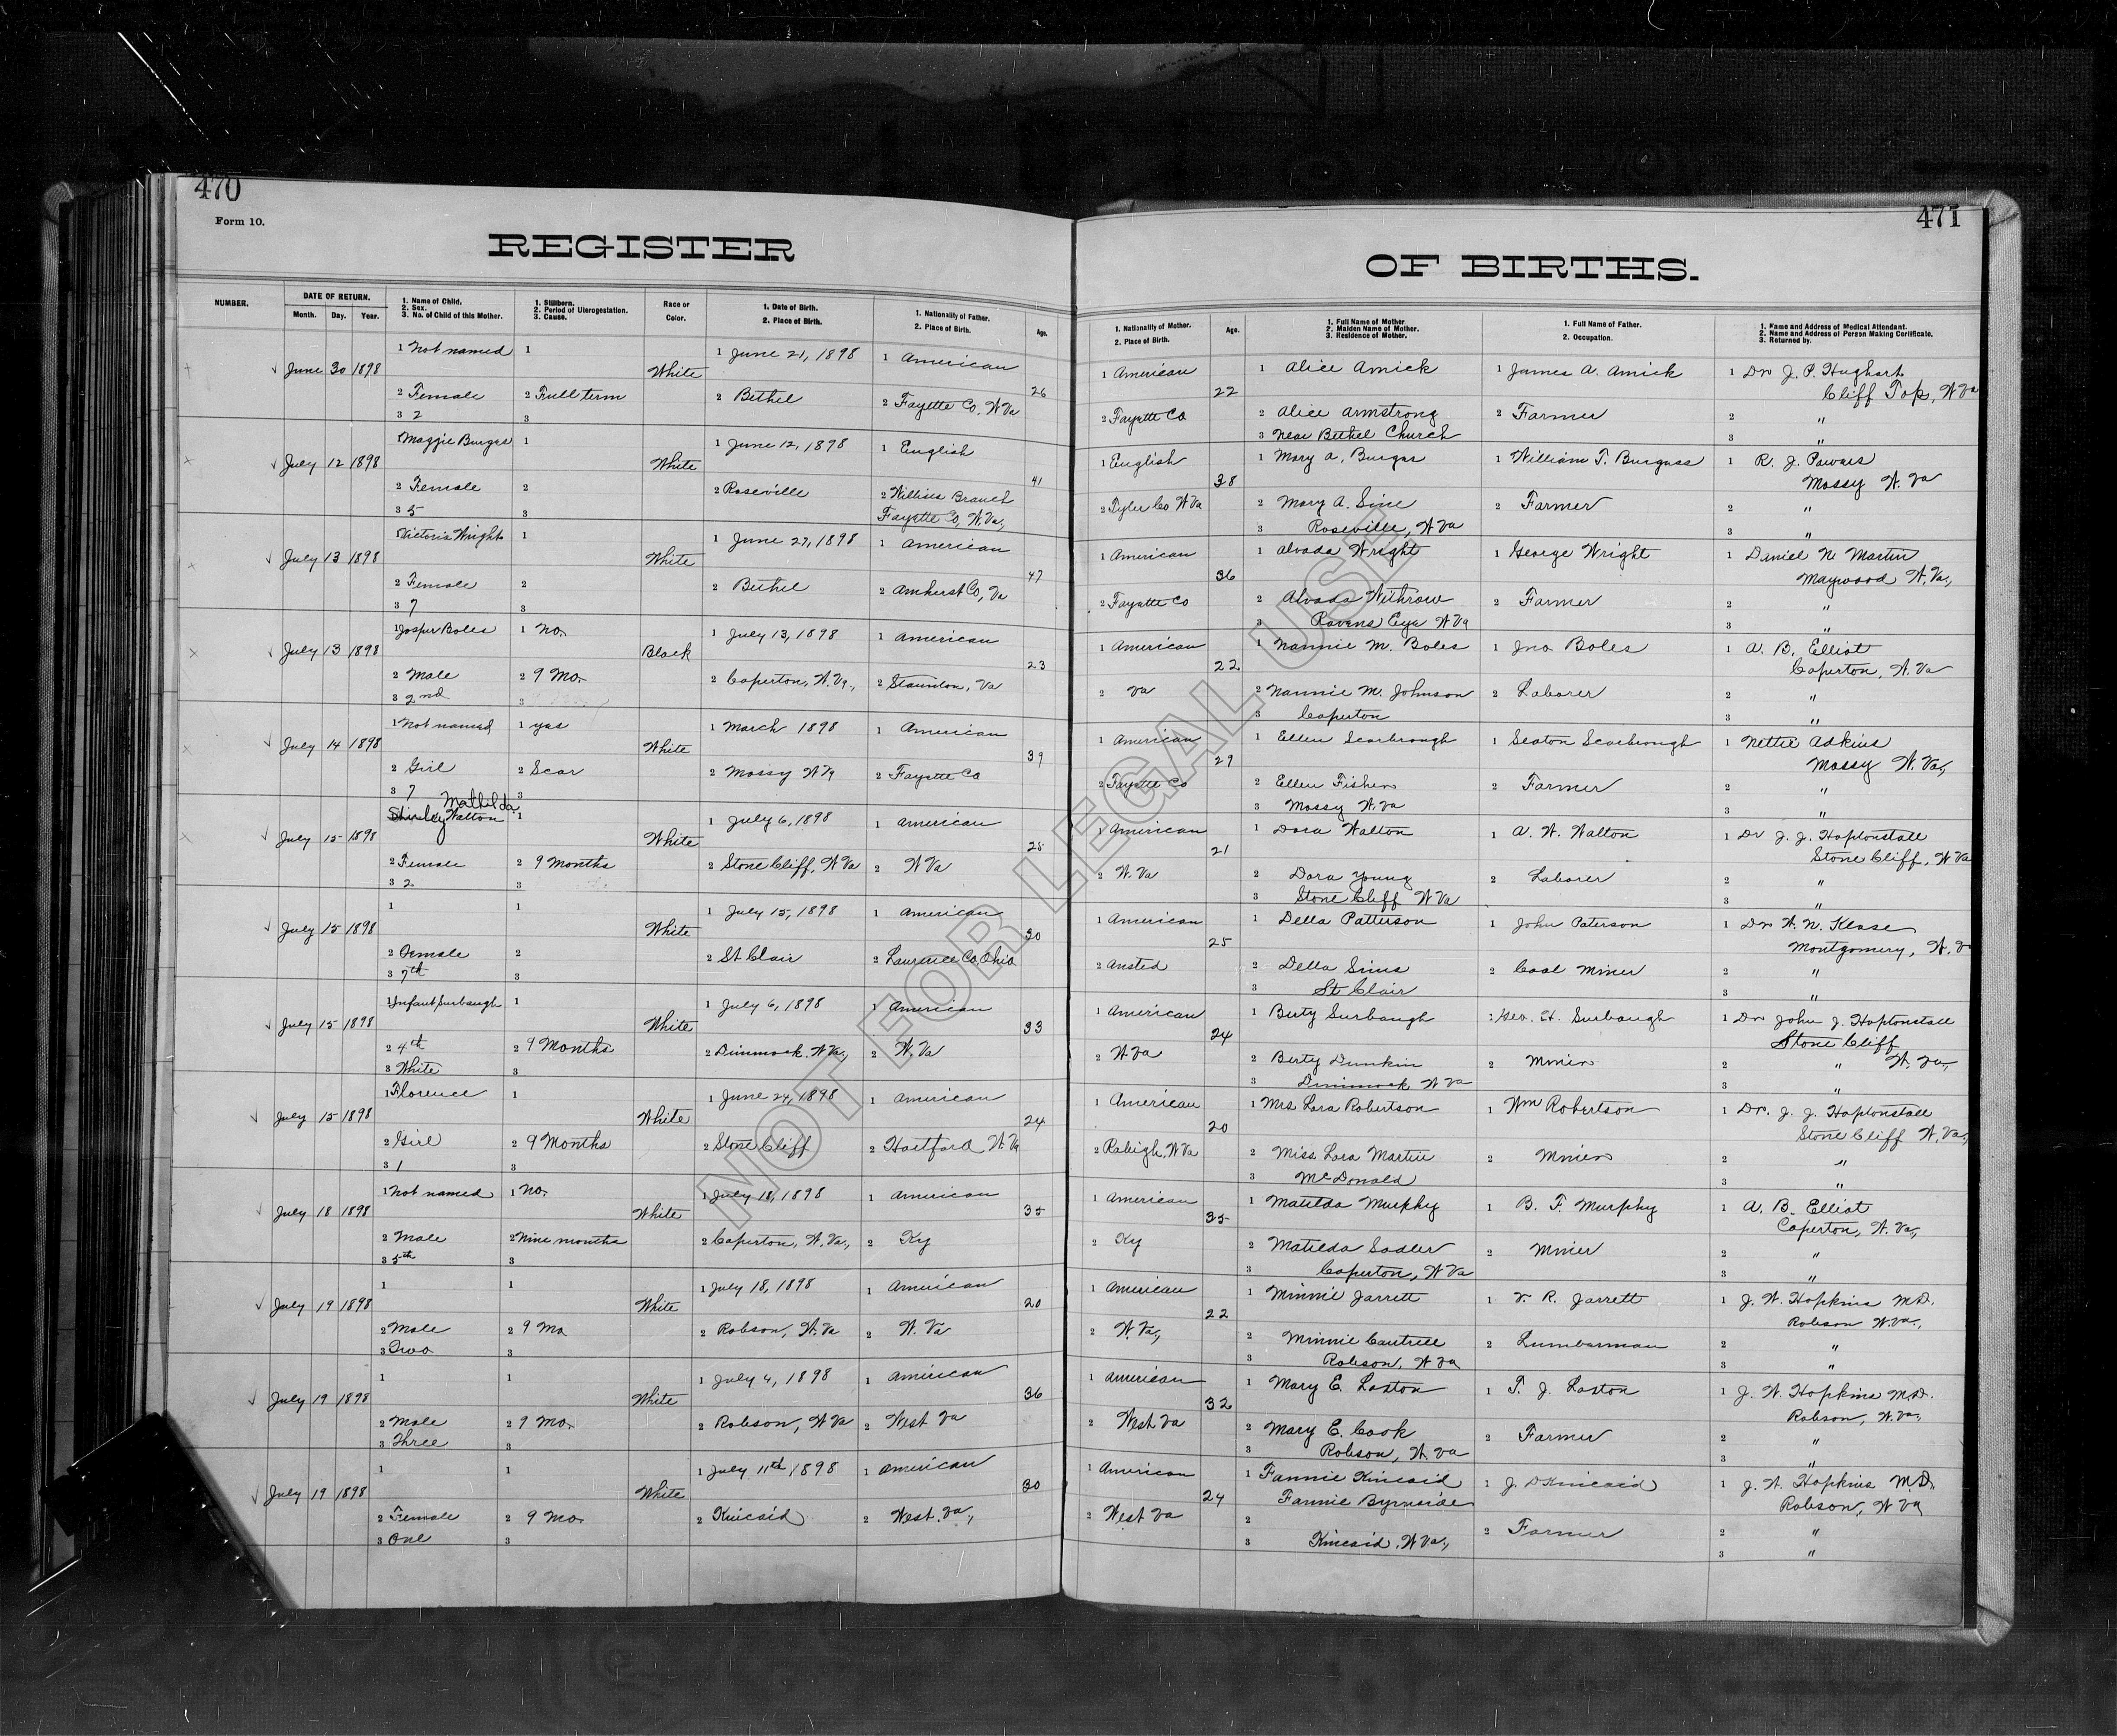 470
471
Form 10.
REGISTER OF BIRTHS.
NUMBER.
DATE OF RETURN.
Month. Day. Year.
1. Name of Child.
2. Sex.
3. No. of Child of this Mother.
1. Stillborn.
2. Period of Uterogestation.
3. Cause.
Race or Color.
1. Date of Birth.
2. Place of Birth.
1. Nationality of Father.
2. Place of Birth.
Age.
1. Nationality of Mother.
2. Place of Birth.
Age.
1. Full Name of Mother
2. Maiden Name of Mother.
3. Residence of Mother.
1. Full Name of Father.
2. Occupation.
1. Name and Address of Medical Attendant.
2. Name and Address of Person Making Certificate.
3. Returned by.
June 30 1898 1 Not named 1 White 1 June 21, 1898 1 American 26 1 American 22 1 Alice Amick 1 James A. Amick 1 Dr J. P. Hughart
Cliff Top, W Va
2 Female 2 Full term 2 Bethel 2 Fayette Co, W Va 2 Fayette Co 2 Alice Armstrong 2 Farmer 2 "
3 2 3 3 Near Bethel Church 3 "
July 12 1898 1 Maggie Burgas 1 White 1 June 12, 1898 1 English 41 1 English 38 1 Mary A. Burgas 1 William T. Burgass 1 R. J. Powers
Mossy W. Va
2 Female 2 2 Roseville 2 Willisis Branch 2 Tyler Co W Va 2 Mary A. Sine 2 Farmer 2 "
Fayette Co, W. Va,
3 5 3 3 Roseville, W Va 3 "
July 13 1898 1 Victoria Wright 1 White 1 June 27, 1898 1 American 47 1 American 36 1 Alvada Wright 1 George Wright 1 Daniel N Martin
Maywood W. Va,
2 Female 2 2 Bethel 2 Amherst Co, Va 2 Fayette Co 2 Alvada Withrow 2 Farmer 2 "
3 7 3 3 Ravens Eye W Va 3 "
July 13 1898 1 Josper Boles 1 No. Black 1 July 13, 1898 1 American 23 1 American 22 1 Nannie M. Boles 1 Jno Boles 1 A. B. Elliot
Caperton, W. Va
2 Male 2 9 Mo. 2 Caperton, W. Va., 2 Staunton, Va 2 Va 2 Nannie M. Johnson 2 Laborer 2 "
3 2nd 3 3 Caperton 3 "
July 14 1898 1 Not named 1 yes White 1 March 1898 1 American 39 1 American 29 1 Ellen Scarbrough 1 Seaton Scarbrough 1 Nettie Adkins
Mossy W. Va,
2 Girl 2 Scar 2 Mossy W Va 2 Fayette Co 2 Fayette Co 2 Ellen Fisher 2 Farmer 2 "
3 7 3 3 Mossy W. Va 3 "
Mathilda
July 15 1898 Shirley Walton 1 White 1 July 6, 1898 1 American 25 1 American 21 1 Dora Walton 1 A. W. Walton 1 Dr J. J. Haptonstall
Stone Cliff, W Va
2 Female 2 9 Months 2 Stone Cliff, W Va 2 W Va 2 W. Va 2 Dora Young 2 Laborer 2 "
3 2 3 3 Stone Cliff W Va 3 "
July 15 1898 1 1 White 1 July 15, 1898 1 American 30 1 American 25 1 Della Patterson 1 John Paterson 1 Dr W. N.
Montgomery, W. V
2 Female 2 2 St Clair 2 Laurence Co, Ohio 2 Ansted 2 Della Sims 2 Coal Miner 2 "
3 7th 3 3 St Clair 3 "
July 15 1898 1 Infant Surbaugh 1 White 1 July 6, 1898 1 American 33 1 American 24 1 Berty Surbaugh 1 Geo. H. Surbaugh 1 Dr John J. Haptonstall
Stone Cliff
2 4th 2 9 Months 2 Dimmock, W Va, 2 W, Va 2 W Va 2 Berty Dunkin 2 Miner 2 " W. Va,
3 White 3 3 Dimmock W Va 3 "
July 15 1898 1 Florence 1 White 1 June 24, 1898 1 American 24 1 American 20 1 Mrs Lora Robertson 1 Wm Robertson 1 Dr. J. J. Haptonstall
Stone Cliff W. Va,
2 Girl 2 9 Months 2 Stone Cliff 2 Hartford W. Va 2 Raleigh, W Va 2 Miss Lora Martin 2 Miner 2 "
3 1 3 3 McDonald 3 "
July 18 1898 1 Not named 1 No. White 1 July 18, 1898 1 American 35 1 American 35 1 Matilda Murphy 1 B. F. Murphy 1 A. B. Elliot
Caperton, W. Va,
2 Male 2 Nine months 2 Caperton, W. Va., 2 Ky 2 Ky 2 Matilda Sadler 2 Miner 2 "
3 5th 3 3 Caperton, W Va 3 "
July 19 1898 1 1 White 1 July 18, 1898 1 American 20 1 American 22 1 Minnie Jarrett 1 V. R. Jarrett 1 J. W. Hopkins M.D.
Robson W. Va.,
2 Male 2 9 Mo 2 Robson, W. Va 2 W. Va 2 W. Va, 2 Minnie Cantrell 2 Lumberman 2 "
3 Two 3 3 Robson, W Va 3 "
July 19 1898 1 1 White 1 July 4, 1898 1 American 36 1 American 32 1 Mary E. Laston 1 T. J. Laston 1 J. W. Hopkins M.D.
Robson, W. Va,
2 Male 2 9 Mo. 2 Robson, W Va 2 West Va 2 West Va 2 Mary E. Cook 2 Farmer 2 "
3 Three 3 3 Robson, W. Va 3 "
July 19 1898 1 1 White 1 July 11th 1898 1 American 30 1 American 24 1 Fannie Kincaid 1 J. D Kincaid 1 J. W. Hopkins M.D.
Fannie Byrnside Robson, W Va
2 Female 2 9 Mo. 2 Kincaid 2 West. Va, 2 West Va 2 2 Farmer 2 "
3 One 3 3 Kincaid, W Va, 3 "
NOT FOR LEGAL USE